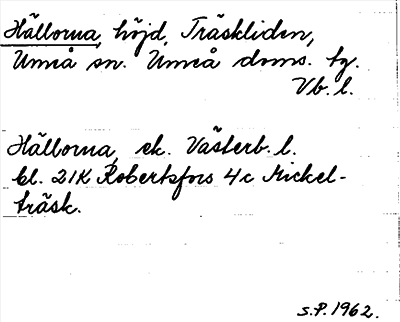 Hällorna, höjd, Träskliden,
Umeå sn. Umeå doms. tg.
Vb. l.
Hällorna, ek. Västerb. l.
bl. 21K Robertsfors 4c Mickel-
träsk.
S.P. 1962.